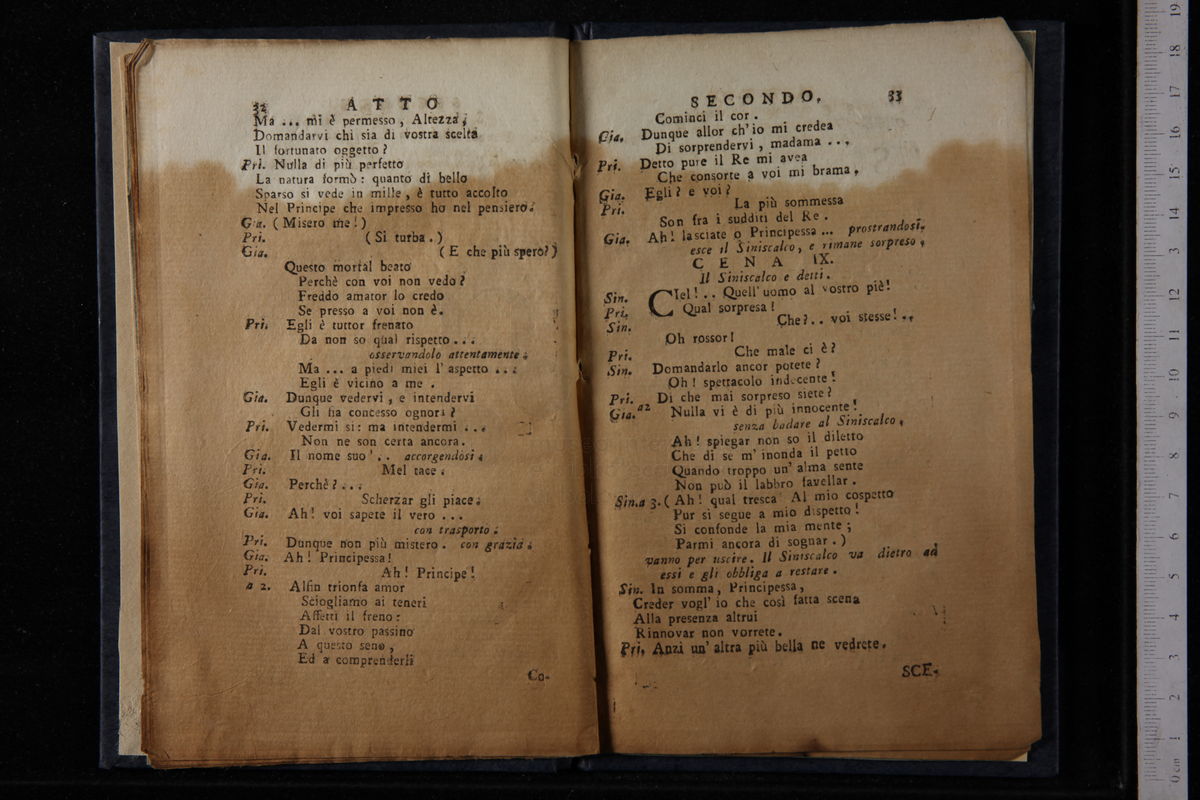 32 ATTO
Ma ... mi è permesso, Altezza,
Domandarvi chi sia di vostra scelta
Il fortunato oggetto?
Pri. Nulla di più perfetto
La natura formò: quanto di bello
Sparso si vede in mille, è tutto accolto
Nel Principe che impresso ho nel pensiero.
Gia. (Misero me!)
Pri. (Si turba.)
Gia. (E che più spero?)
Questo mortal beato
Perchè con voi non vedo?
Freddo amator lo credo
Se presso a voi non è.
Pri. Egli è tuttor frenato
Da non so qual rispetto...
osservandolo attentamente.
Ma ... a piedi miei l'aspetto ...
Egli è vicino a me.
Gia. Dunque vedervi, e intendervi
Gli fia concesso ognora?
Pri. Vedermi sì: ma intendermi ...
Non ne son certa ancora.
Gia. Il nome suo'.. accorgendosi.
Pri. Mel tace.
Gia. Perchè?...
Pri. Scherzar gli piace.
Gia. Ah! voi sapete il vero ...
con trasporto.
Pri. Dunque non più mistero. con grazia.
Gia. Ah! Principessa!
Pri. Ah! Principe!
a 2. Alfin trionfa amor
Sciogliamo ai teneri
Affetti il freno:
Dal vostro passino
A questo seno,
Ed a comprenderli
Co-
SECONDO. 33
Cominci il cor.
Gia. Dunque allor ch'io mi credea
Di sorprendervi, madama ...
Pri. Detto pure il Re mi avea
Che consorte a voi mi brama.
Gia. Egli? e voi?
Pri. La più sommessa
Son fra i sudditi del Re.
Gia. Ah! lasciate o Principessa ... prostrandosi.
esce il Siniscalco, e rimane sorpreso.
CENA IX.
Il Siniscalco e detti.
Sin. CIel!.. Quell'uomo al vostro piè!
Pri. Qual sorpresa!
Sin. Che?.. voi stesse!..
Oh rossor!
Pri. Che male ci è?
Sin. Domandarlo ancor potete?
Oh! spettacolo indecente!
Pri. Di che mai sorpreso siete?
Gia. a2 Nulla vi è di più innocente!
senza badare al Siniscalco.
Ah! spiegar non so il diletto
Che di se m'inonda il petto
Quando troppo un'alma sente
Non può il labbro favellar.
Sin.a 3. (Ah! qual tresca Al mio cospetto
Pur si segue a mio dispetto!
Si confonde la mia mente;
Parmi ancora di sognar.)
vanno per uscire. Il Siniscalco va dietro ad
essi e gli obbliga a restare.
Sin. In somma, Principessa,
Creder vogl'io che così fatta scena
Alla presenza altrui
Rinnovar non vorrete.
Pri. Anzi un'altra più bella ne vedrete.
SCE-